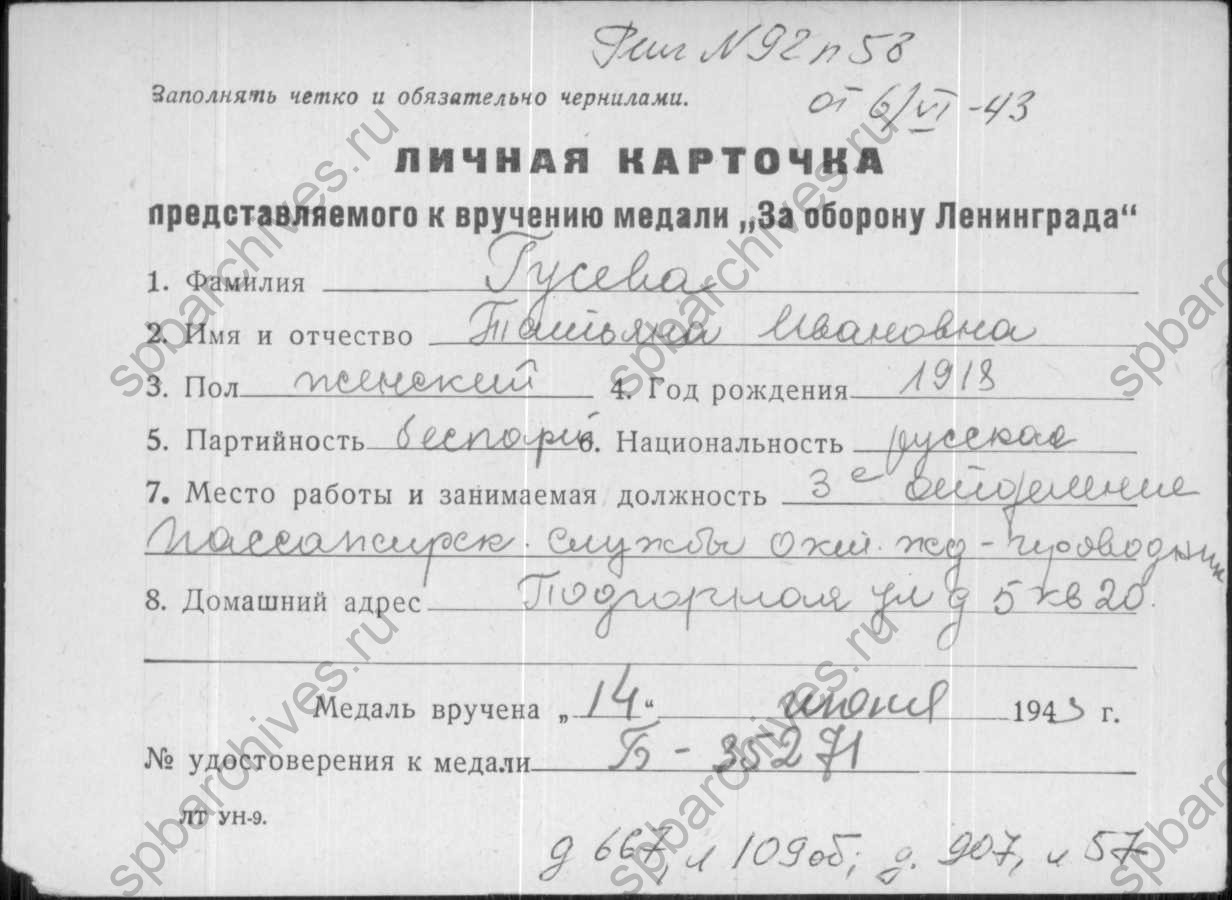 Реш N 92 п 58
Заполнять четко и обязательно чернилами.
от 6/VI -43
ЛИЧНАЯ КАРТОЧКА
представляемого к вручению медали „За оборону Ленинграда“
1. Фамилия Гусева
2. Имя и отчество Татьяна Ивановна
3. Пол женский 4. Год рождения 1918
5. Партийность беспарт 6. Национальность русская
7. Место работы и занимаемая должность 3е отделение
Пассажирск. службы Окт. жд - проводник
8. Домашний адрес Подгорная ул д 5 кв 20.
Медаль вручена „14“ июня 1943 г.
№ удостоверения к медали Б - 35271
ЛТ УН-9.
д 667, л 109об; д. 907, л 57
spbarchives.ru
spbarchives.ru
spbarchives.ru
spbarchives.ru
spbarchives.ru
spbarchives.ru